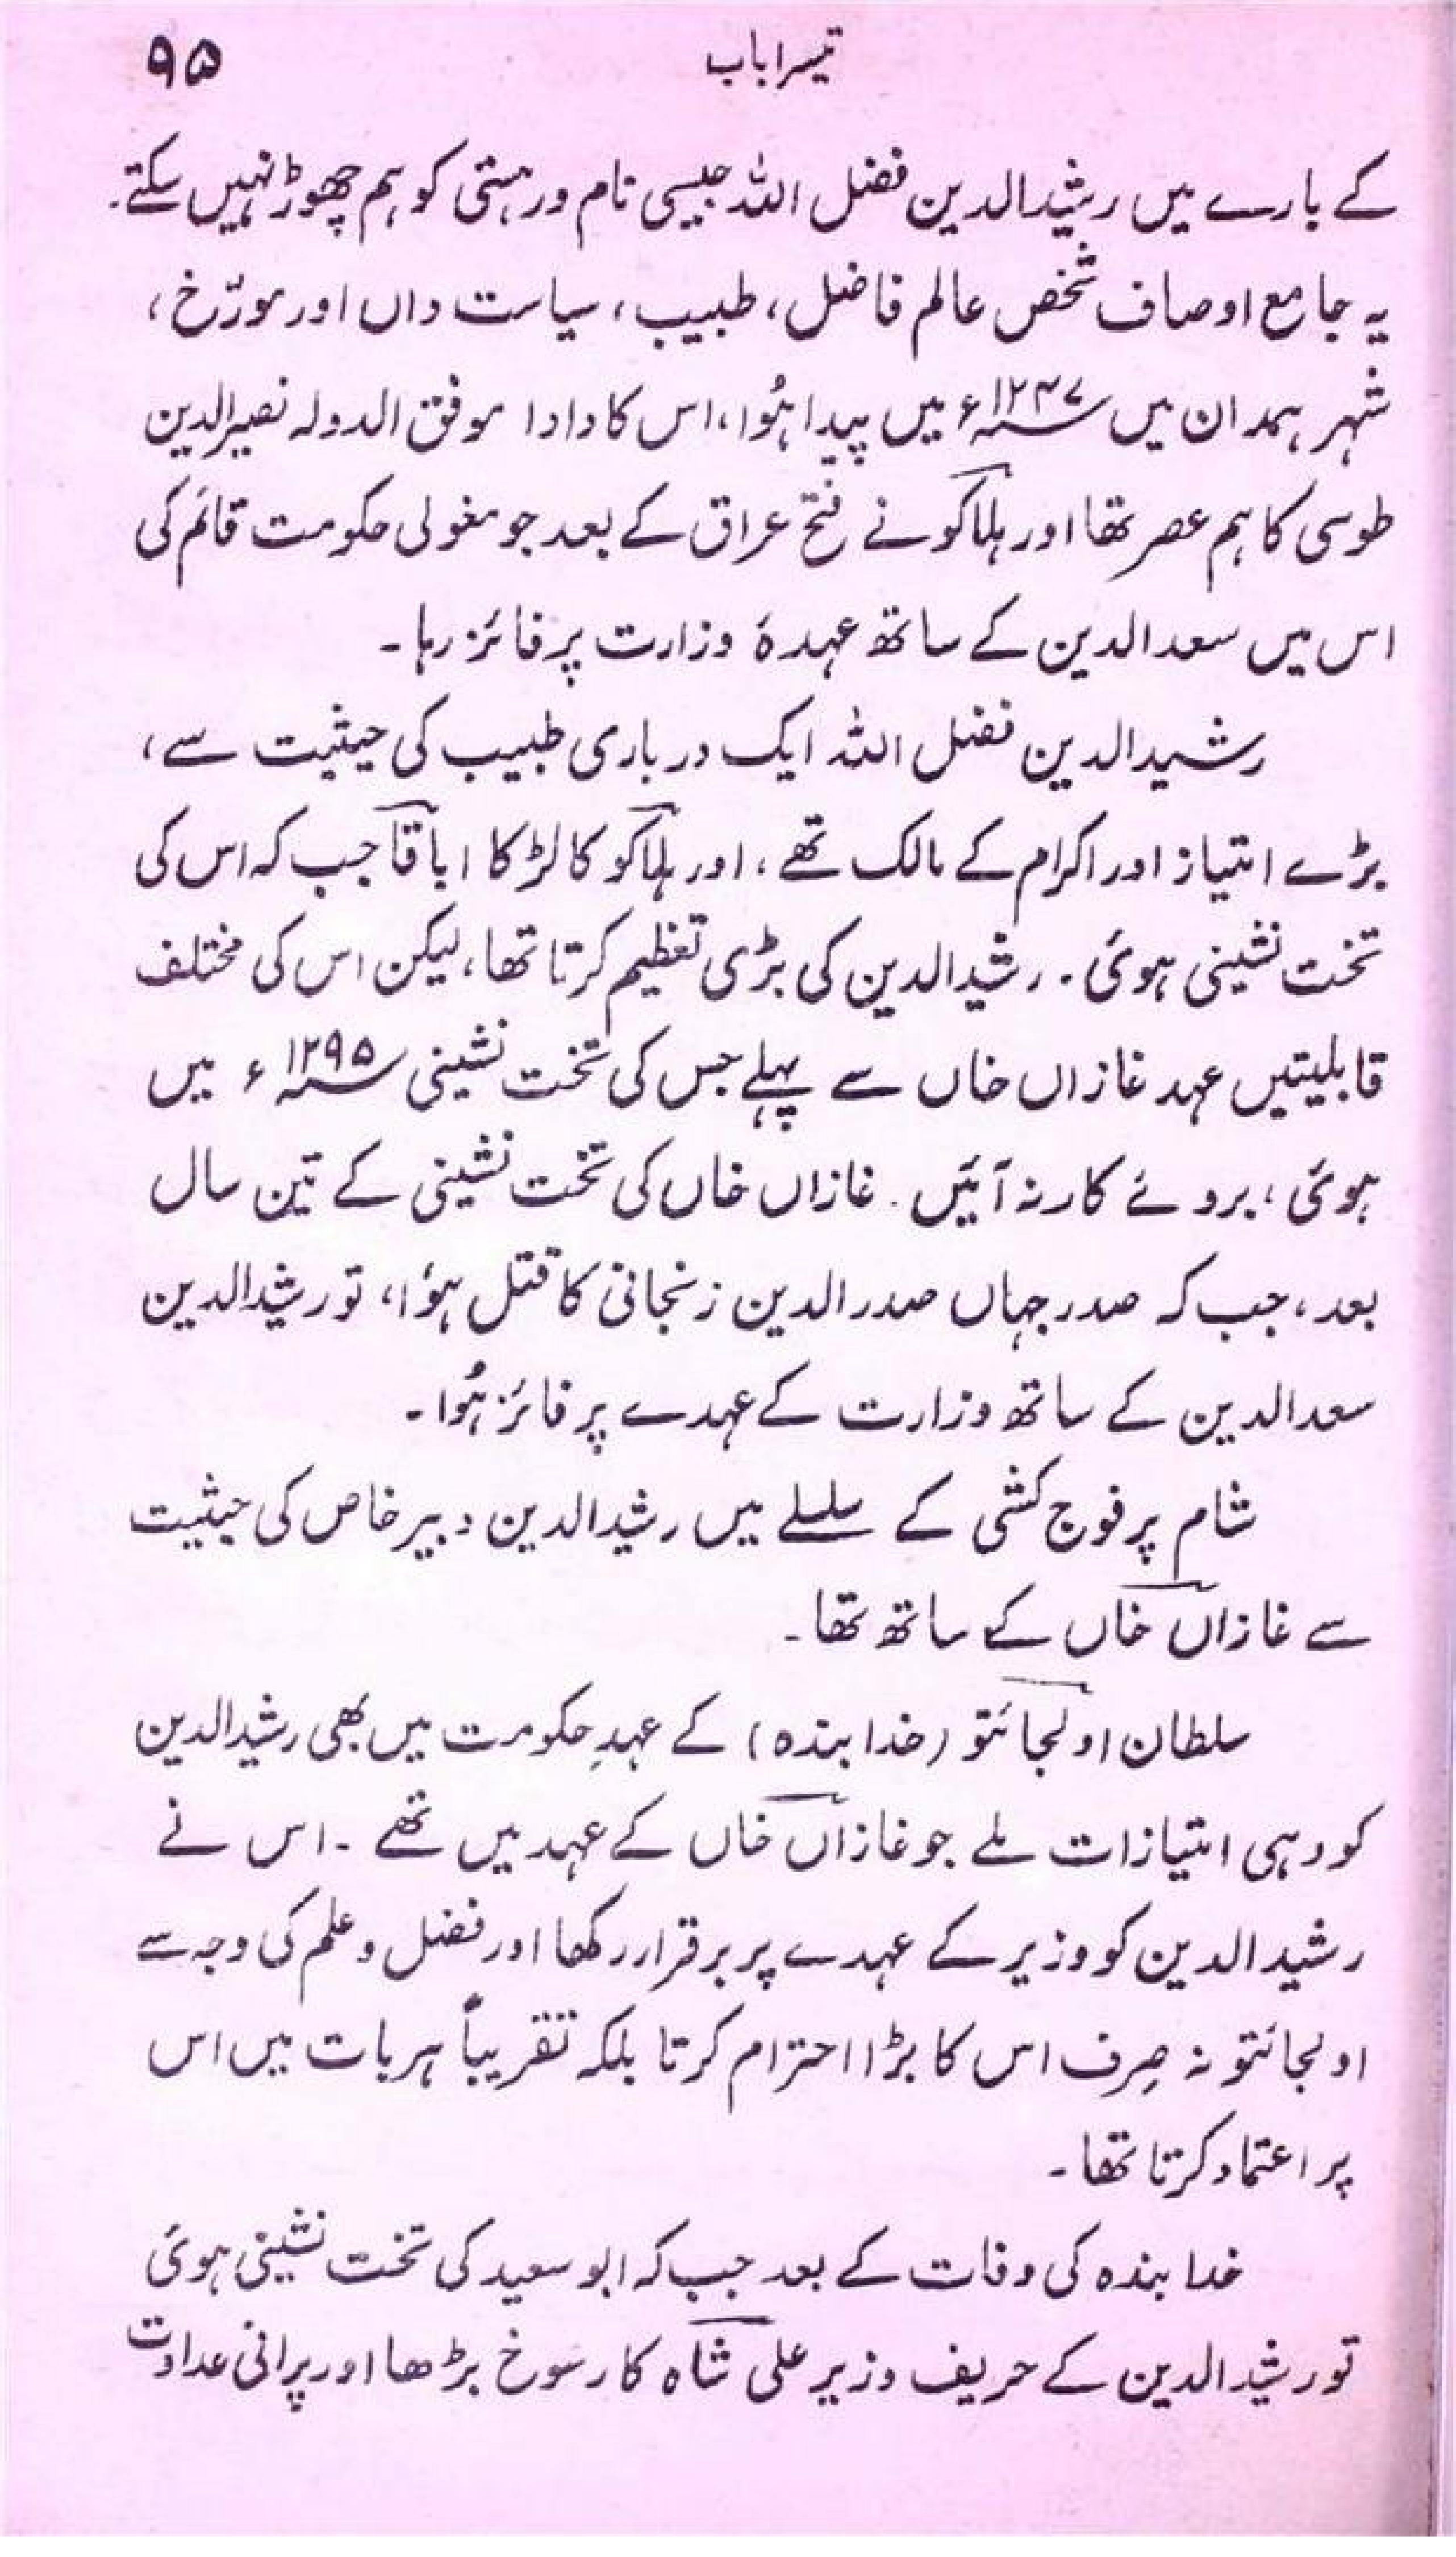 تیسرا باب ۹۵
کے بارے میں رشیدالدین فضل اللہ جیسی نام ور ہستی کو ہم چھوڑ نہیں سکتے۔
یہ جامع اوصاف شخص عالم فاضل، طبیب، سیاست داں اور مورّخ،
شہر ہمدان میں ۱۲۴۷ء میں پیدا ہُوا، اس کا دادا موفق الدولہ نصیرالدین
طوسی کا ہم عصر تھا اور ہلاکو نے فتح عراق کے بعد جو مغولی حکومت قائم کی
اس میں سعد الدین کے ساتھ عہدۂ وزارت پر فائز رہا۔
رشیدالدین فضل اللہ ایک درباری طبیب کی حیثیت سے،
بڑے امتیاز اور اکرام کے مالک تھے، اور ہلاکو کا لڑکا اباقا جب کہ اس کی
تخت نشینی ہوئی۔ رشیدالدین کی بڑی تعظیم کرتا تھا، لیکن اس کی مختلف
قابلیتیں عہد غازاں خاں سے پہلے جس کی تخت نشینی ۱۲۹۵ء میں
ہوئی، بروئے کار نہ آئیں۔ غازاں خاں کی تخت نشینی کے تین سال
بعد، جب کہ صدر جہاں صدر الدین زنجانی کا قتل ہؤا، تو رشیدالدین
سعدالدین کے ساتھ وزارت کے عہدے پر فائز ہُوا۔
شام پر فوج کشی کے سلسلے میں رشیدالدین دبیر خاص کی حیثیت
سے غازاں خاں کے ساتھ تھا۔
سلطان اولجائتو (خدا بندہ) کے عہدِ حکومت میں بھی رشیدالدین
کو وہی امتیازات ملے جو غازاں خاں کے عہد میں تھے۔ اس نے
رشید الدین کو وزیر کے عہدے پر برقرار رکھا اور فضل و علم کی وجہ سے
اولجائتو نہ صِرف اس کا بڑا احترام کرتا بلکہ تقریباً ہر بات میں اس
پر اعتماد کرتا تھا۔
خدا بندہ کی وفات کے بعد جب کہ ابو سعید کی تخت نشینی ہوئی
تو رشیدالدین کے حریف وزیر علی شاہ کا رسوخ بڑھا اور پرانی عداوت